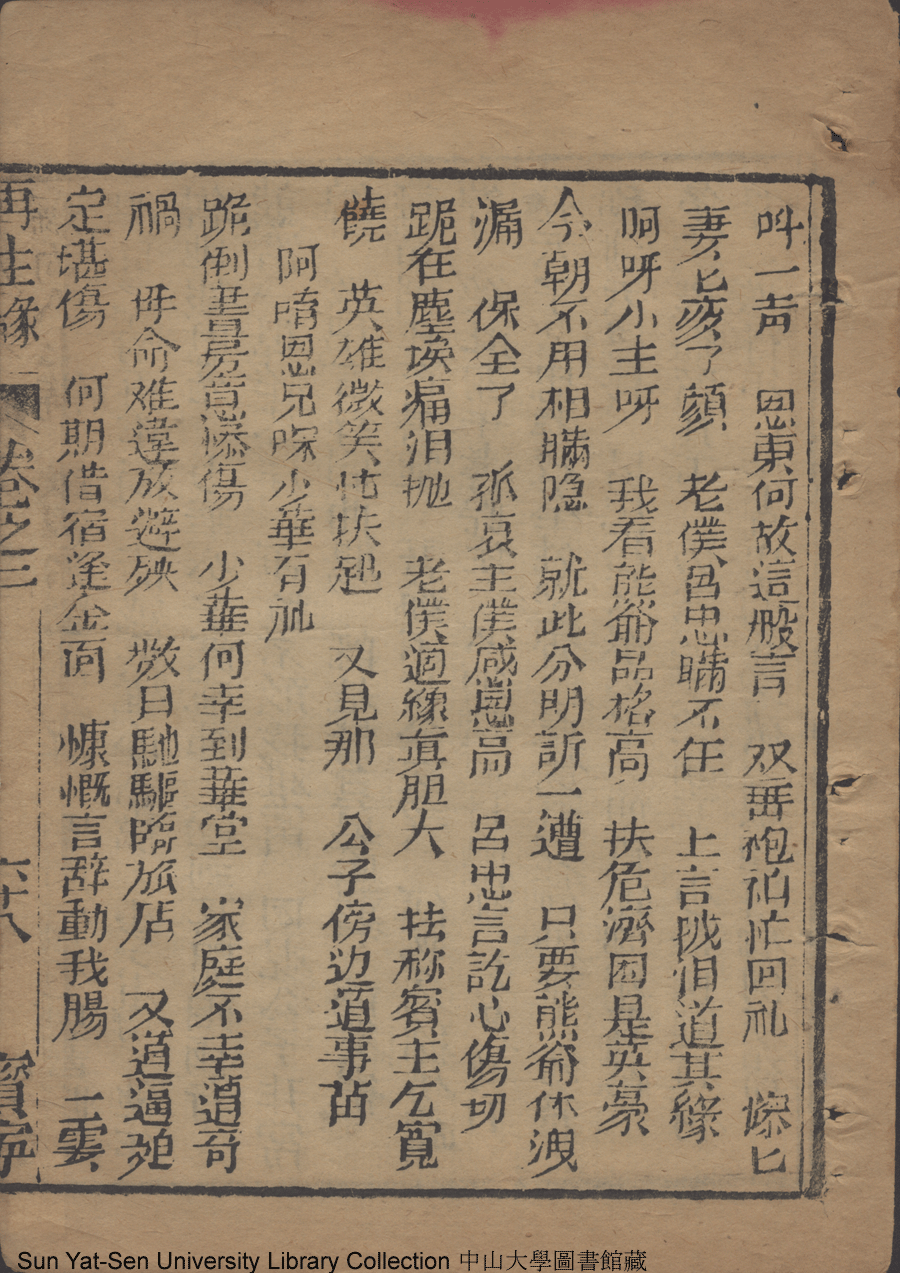 叫一声　恩東何故這般言　双垂袍袖忙回礼　惨匕
妻匕变了顔　老僕呂忠瞞不住　上言拔泪道其緣
呵呀小主呀　我看熊爺品格高　扶危濟困是英豪
今朝不用相瞞隐　就此分明訴一遭　只要熊爺休洩
漏　保全了　孤哀主僕感恩高　呂忠言訖心傷切
跪在塵埃痛泪抛　老僕適緣真胆大　祛称賓主乞寬
饒　英雄微笑忙扶起　又見那　公子傍边道事苗
阿唷恩兄嗄少華有礼
跪倒書房意惨傷　少華何幸到華堂　家庭不幸遭奇
禍　母命难違放避殃　数日馳驅臨旅店　又遭逼
定堪傷　何期借宿逢金面　慷慨言辞動我腸　二雲
再生緣　卷之三　六十八　寳寧
Sun Yat-Sen University Library Collection 中山大學圖書館藏